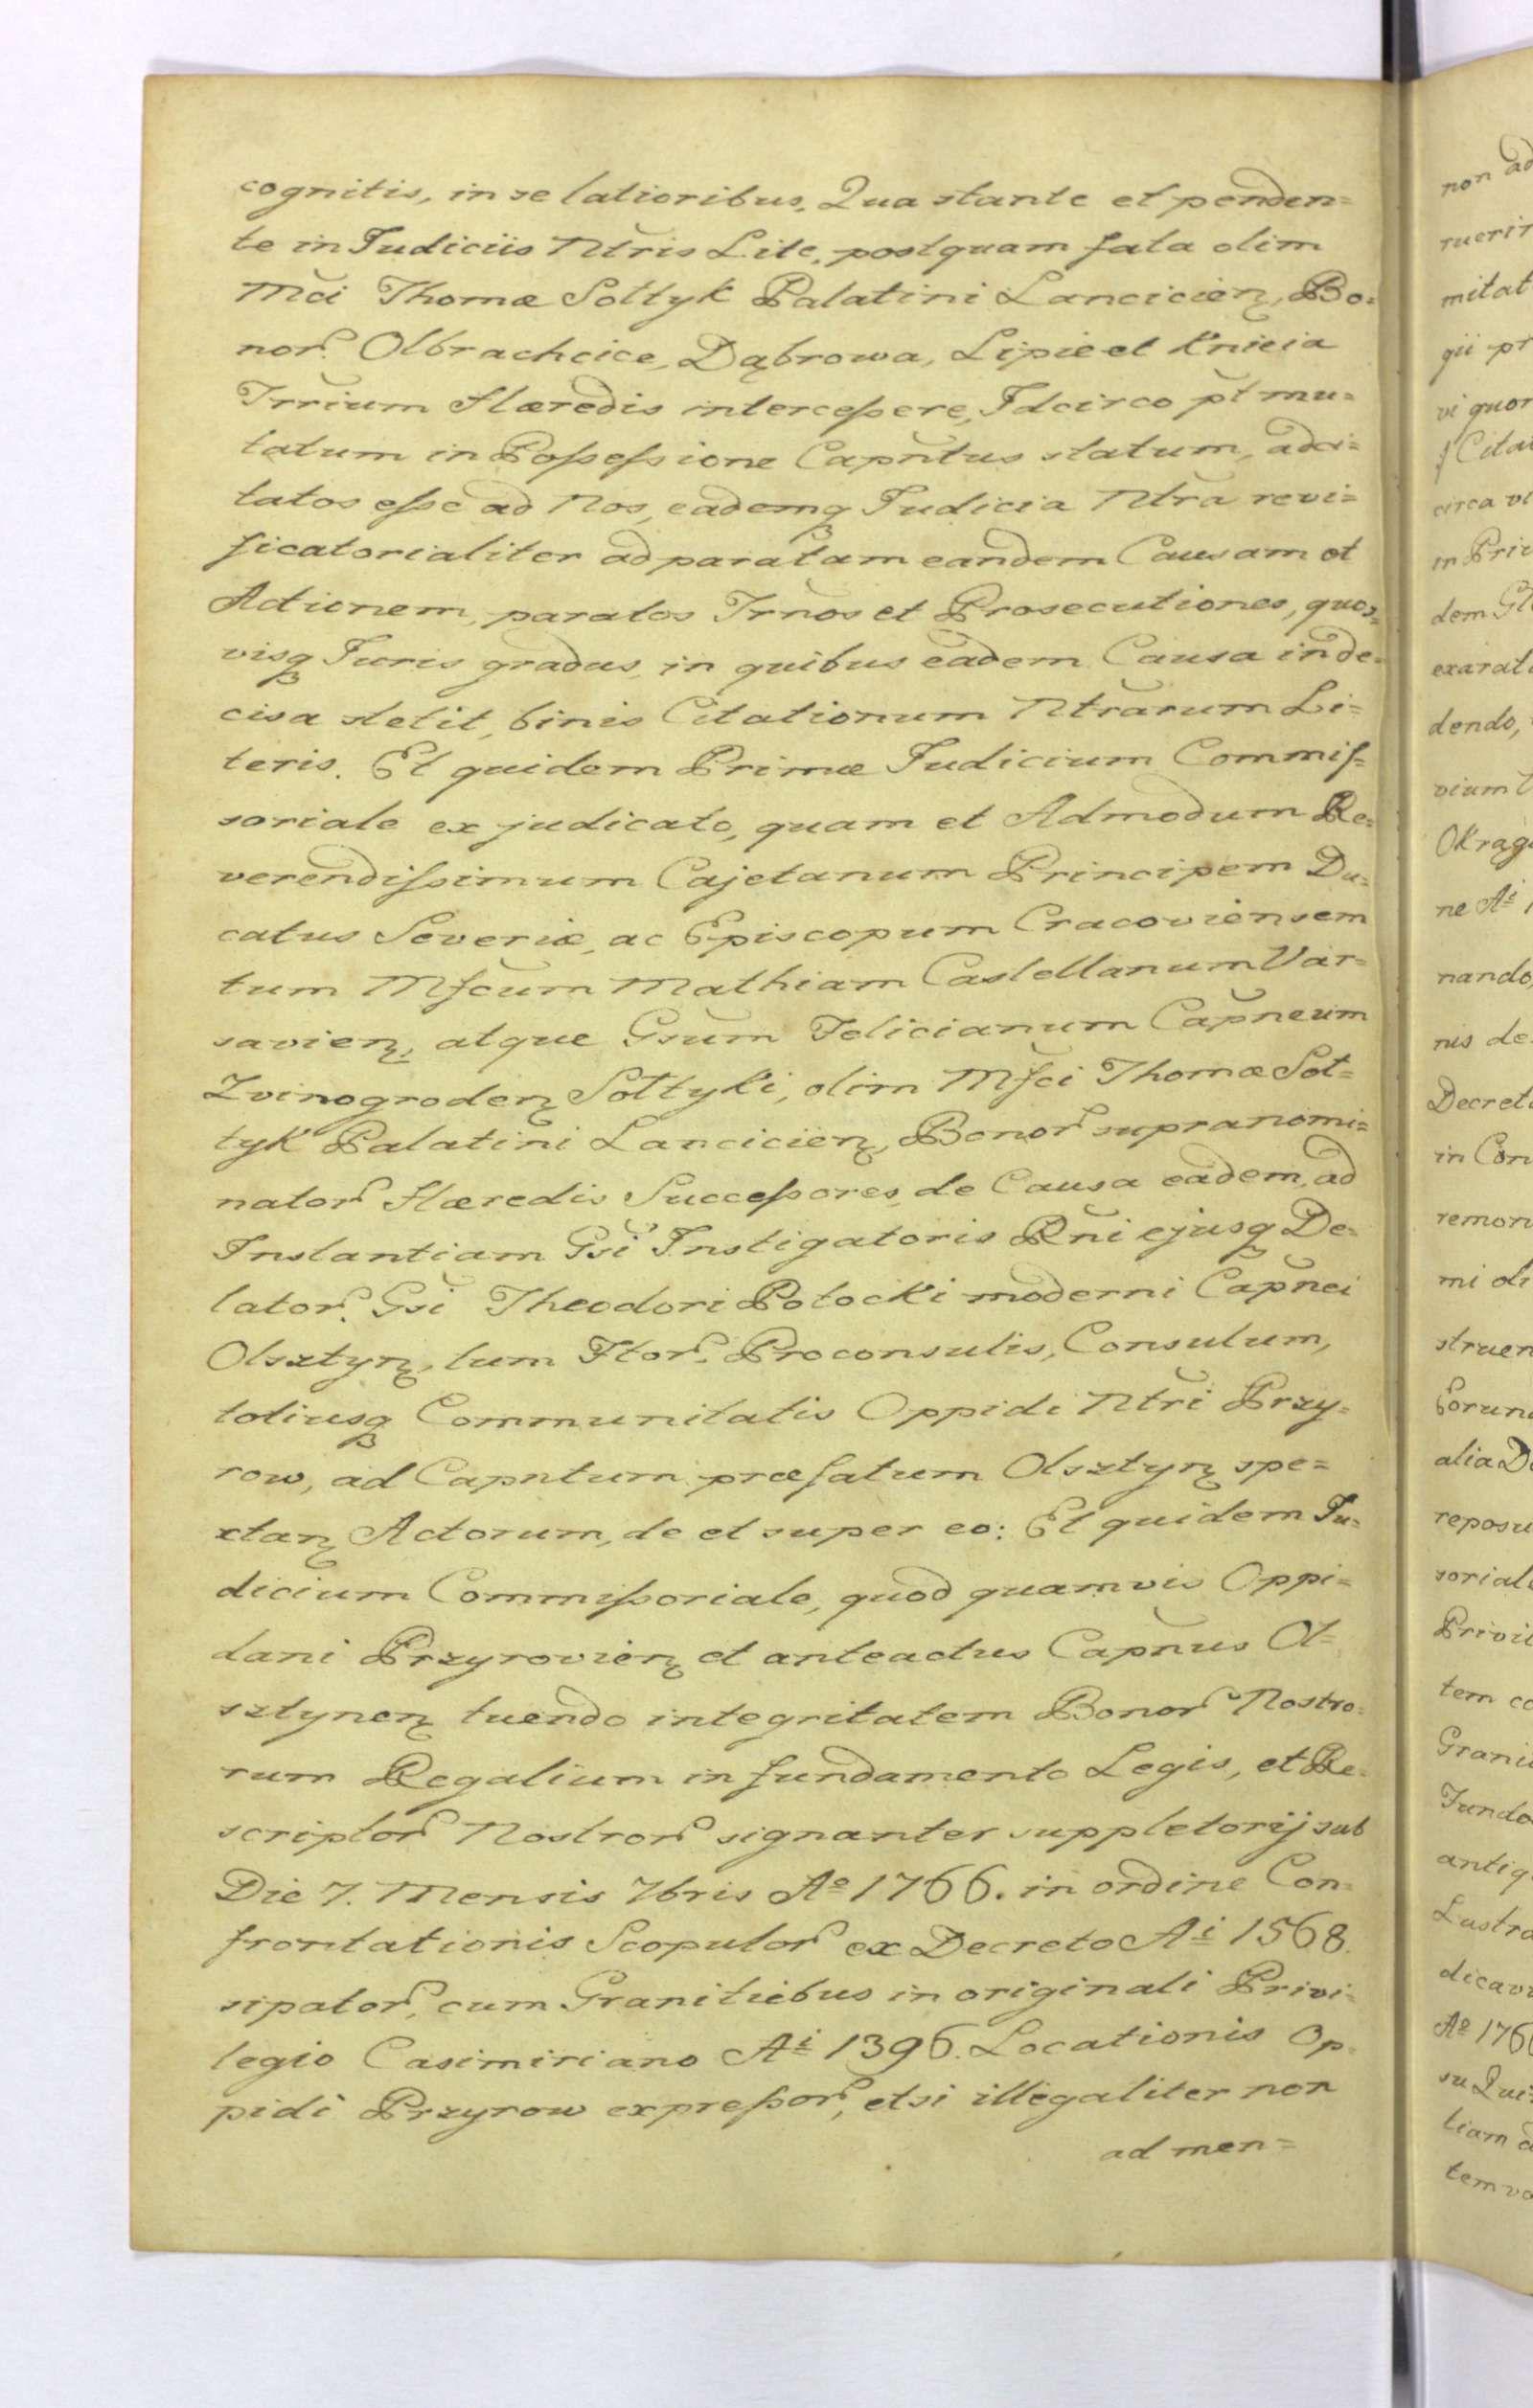 cognitis, in se latioribus. Qua stante et penden=
te in Judiciis Ntris Lite, postquam fata olim
Mci Thomæ Sołtyk Palatini Lancicień, Bo=
nor. Olbrachcice, Dąbrowa, Lipie et Knieia
Trrium Hæredis intercessere, Idcirco pt mu=
tatum in Possessione Capntus statum, adci=
tatos esse ad Nos, eademq Judicia Ntra revi=
ficatorialiter ad paratam eandem Causam et
Actionem, paratos Trnos et Prosecutiones, quos=
visq Juris gradus, in quibus eadem Causa inde=
cisa stetit, binis Citationum Ntrarum Li=
teris. Et quidem Primæ Judicium Commis=
soriale ex judicato, quam et Admodum Re=
verendissimum Cajetanum Principem Du=
catus Severiæ, ac Episcopum Cracoviensem
tum Mfcum Mathiam Castellanum Var=
savień, atque Gsum Felicianum Capneum
Zvinogrodeń Sołtyki, olim Mfci Thomæ Soł=
tyk Palatini Lancicień, Bonor supranomi=
nator Hæredis Successores, de Causa eadem, ad
Instantiam Gsi Instigatoris Rni ejusq De=
lator. Gsi Theodori Potocki moderni Capnei
Olsztyń, tum Ftor. Proconsulis, Consulum,
totiusq Communitatis Oppidi Ntri Przy=
row, ad Capntum præfatum Olsztyń spe=
ctań Actorum, de et super eo: Et quidem Ju=
dicium Commissoriale, quod quamvis Oppi=
dani Przyrovień et anteactus Capnus Ol=
sztyneń tuendo integritatem Bonor Nostro=
rum Regalium in fundamento Legis, et Re=
scriptor Nostror signanter suppletorij sub
Die 7. Mensis 7bris Aº 1766. in ordine Con=
frontationis Scopulor ex Decreto Ai 1568.
sipator, cum Granitiebus in originali Privi=
legio Casimiriano Ai 1396. Locationis Op=
pidi Przyrow expressor, etsi illegaliter non
ad men=
non ad
ruerin
mitat
gii pr
vi quor
Citat
circa vi
in Priv
dem Gl
exarat
dendo,
vium
Okrąg
ne Ai 1
nando,
nis de
Decret
in Con
remon
mi ol
struen
alia De
reposu
sorial
Privil
tem co
Grani
Fundo
antiq
Lustra
dicavi
Aº 176
su Qui
tiam
tem vo